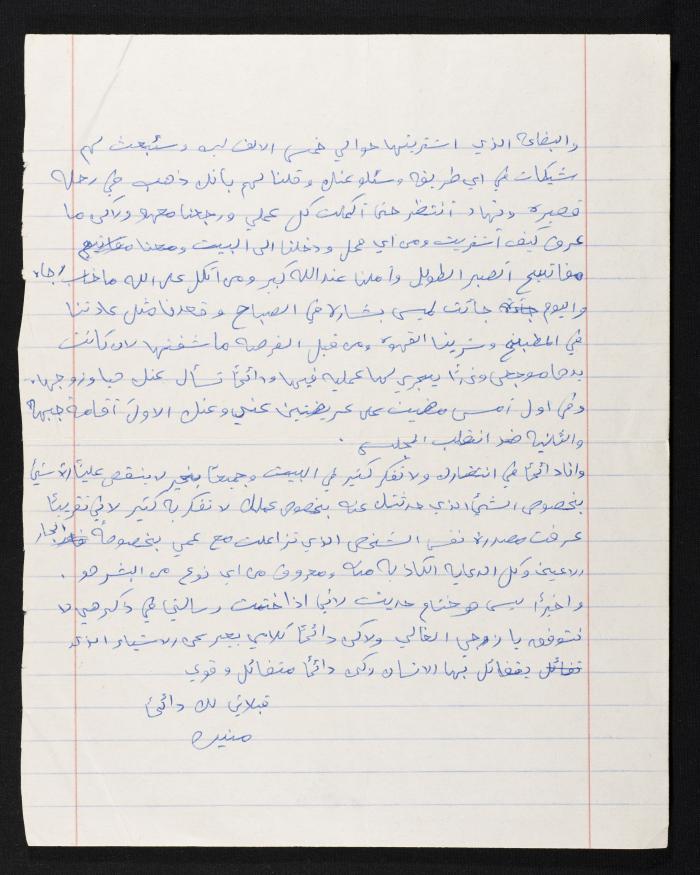 والبضاعة الذي اشتريتها حوالي خمس الالف ليره وسنبعث لهم
شيكات في اي طريقه وسئلو عنك وقلنا لهم بأنك ذهبت في رحله
قصيره ونهاد أنتظر حتى أكملت كل عملي ورجعنا معهو ولاكن ما
عرف كيف أشتريت ومن اي محل ودخلنا الى البيت ومعنا
مفاتييح الصبر الطويل وأملنا عند الله كبير ومن اتكل على الله ما خاب رجاه
واليوم جأت لميس بشاره في الصباح وقعدنا مثل عادتنا
في المطبخ وشربنا القهوه ومن قبل الفرصه ما شفتها لان كانت
يدها موجعى وغداً بيجري لها عمليه فيها ودائماً تسأل عنك هيا وزوجها.
وفي اول أمس مضيت على عريضتين عني وعنك الاول أقامة جبهة
والثانيه ضد انقلاب المجلس .
وانا دائماً في انتضارك ولا تفكر كثير في البيت وجميعاً بخير لا ينقص علينا اي شيئ
بخصوص الشيئ الذي حدثتك عنه بخصوص عملك لا تفكر به كثير لاني تقريباً
عرفت مصدره نفس الشخص الذي تزاعلت مع عمي بخصوصه الجار
الاعين وكل الدعايه الكاذبه منه ومعروف من اي نوع من البشر هو .
واخيراً ليس هو ختام حديث لاني اذا ختمت رسالتي في ذكرهي لا
نتوفق يا زوجي الغالي ولاكن دائماً كلامي يعبر عن الاشياء الذي
يتفائل بها الانسان وكن دائماً متفائل وقوي
قبلاتي لك دائماً